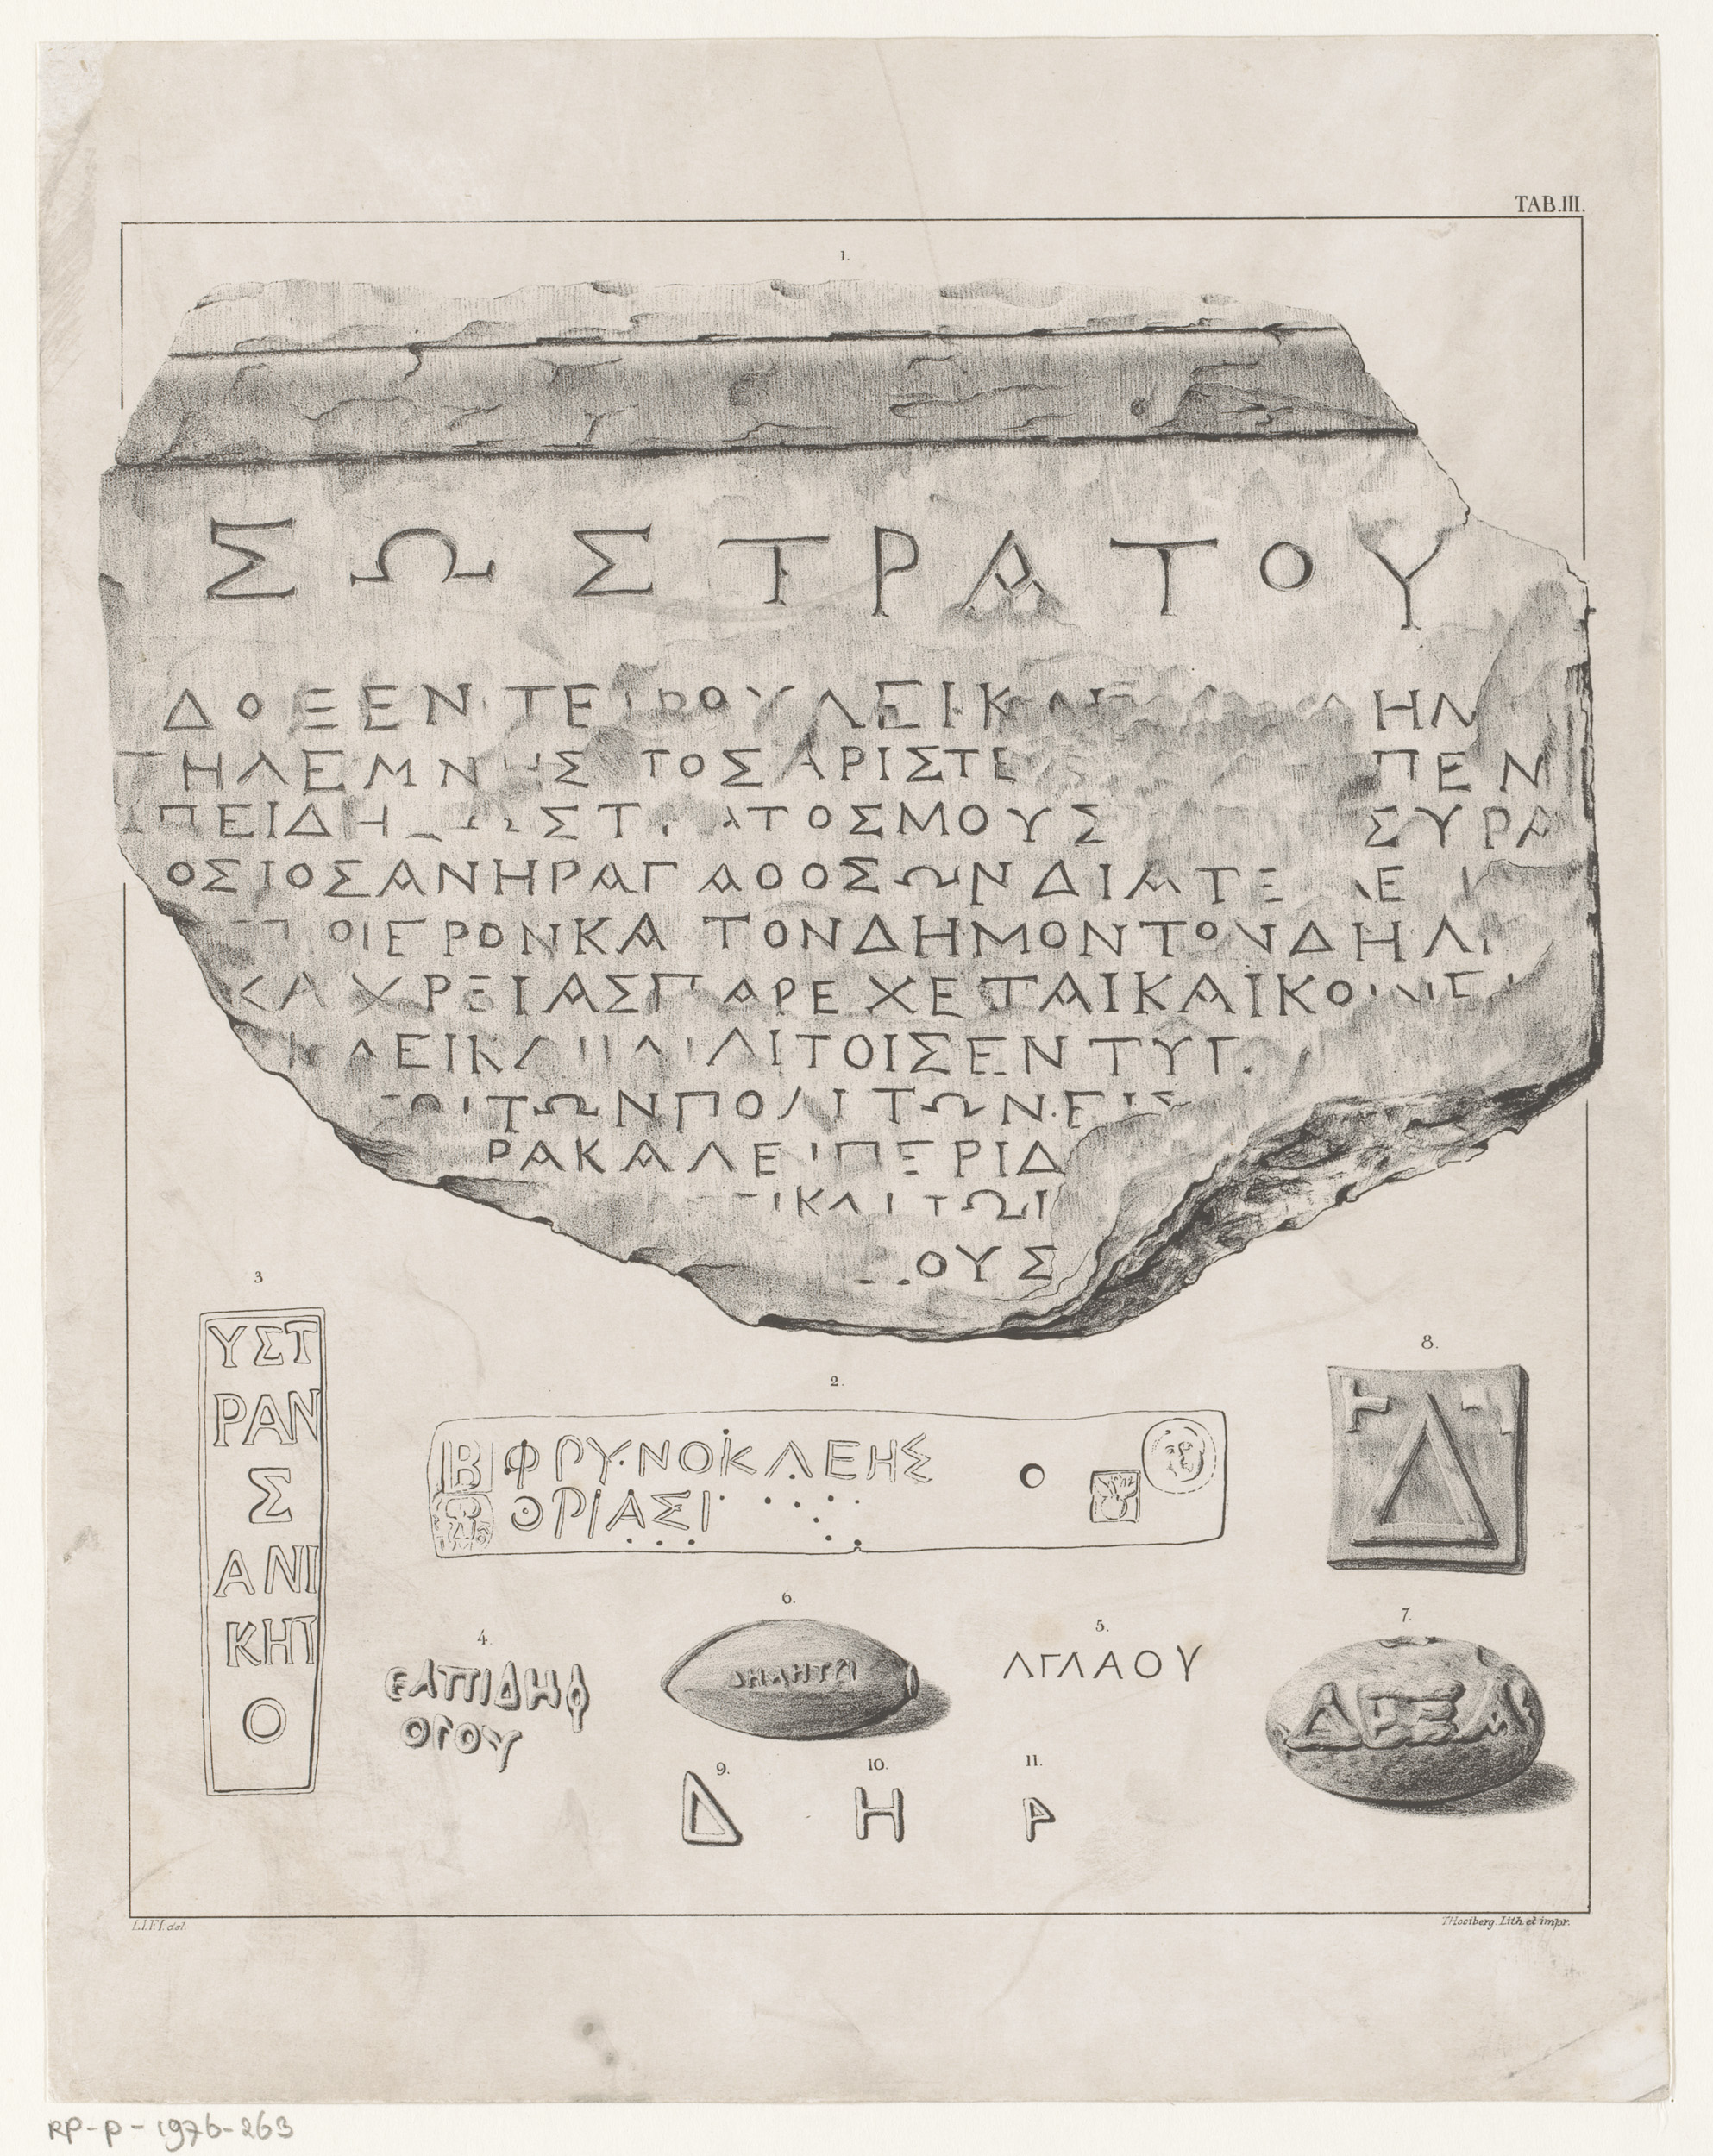 TAB.III.
1.
ΣΩΣΤΡΑΤΟΥ
ΔΟΞΕΝ ΤΕΙΒΟΥΛΕΙΚ ΗΛ
ΤΗΛΕΜΝ ΗΣ ΤΟΣ ΑΡΙΣΤΕ ΠΕΝ
ΠΕΙΔΗ ΩΣΤ ΑΤΟΣΜΟΥΣ ΣΥΡΑ
ΟΣΙΟΣΑΝΗΡΑΓΑΟΟΣΩΝΔΙΑΤΕ ΛΕ Ι
ΟΙΕΡΟΝΚΑ ΤΟΝΔΗΜΟΝΤΟΝΔΗΛΙ
ΚΑ ΧΡΕΙΑΣΠΑΡΕΧΕΤΑΙΚΑΙΚΟ
ΛΕΙΚ ΛΙΤΟΙΣΕΝΤΥΓ
ΤΩΝΠΟΛΙΤΩΝ
ΡΑΚΑΛΕΙΠΕΡΙΔ
ΙΚΑΙΤΩΙ
ΟΥΣ
3
ΥΣΤ
ΡΑΝ
Σ
ΑΝΙ
ΚΗΤ
Ο
2.
Β ΦΡΥΝΟΚΛΕΗΣ
ΘΡΙΑΣΙ
8.
Δ
4.
ΕΛΠΙΔΗΦ
ΟΓΟΥ
6.
5.
ΛΓΛΑΟΥ
7.
ΔΕΞΑ
9.
Δ
10.
Η
11.
Ρ
L.I.F.I. del.
THooiberg. Lith. et impr.
RP-P-1976-263